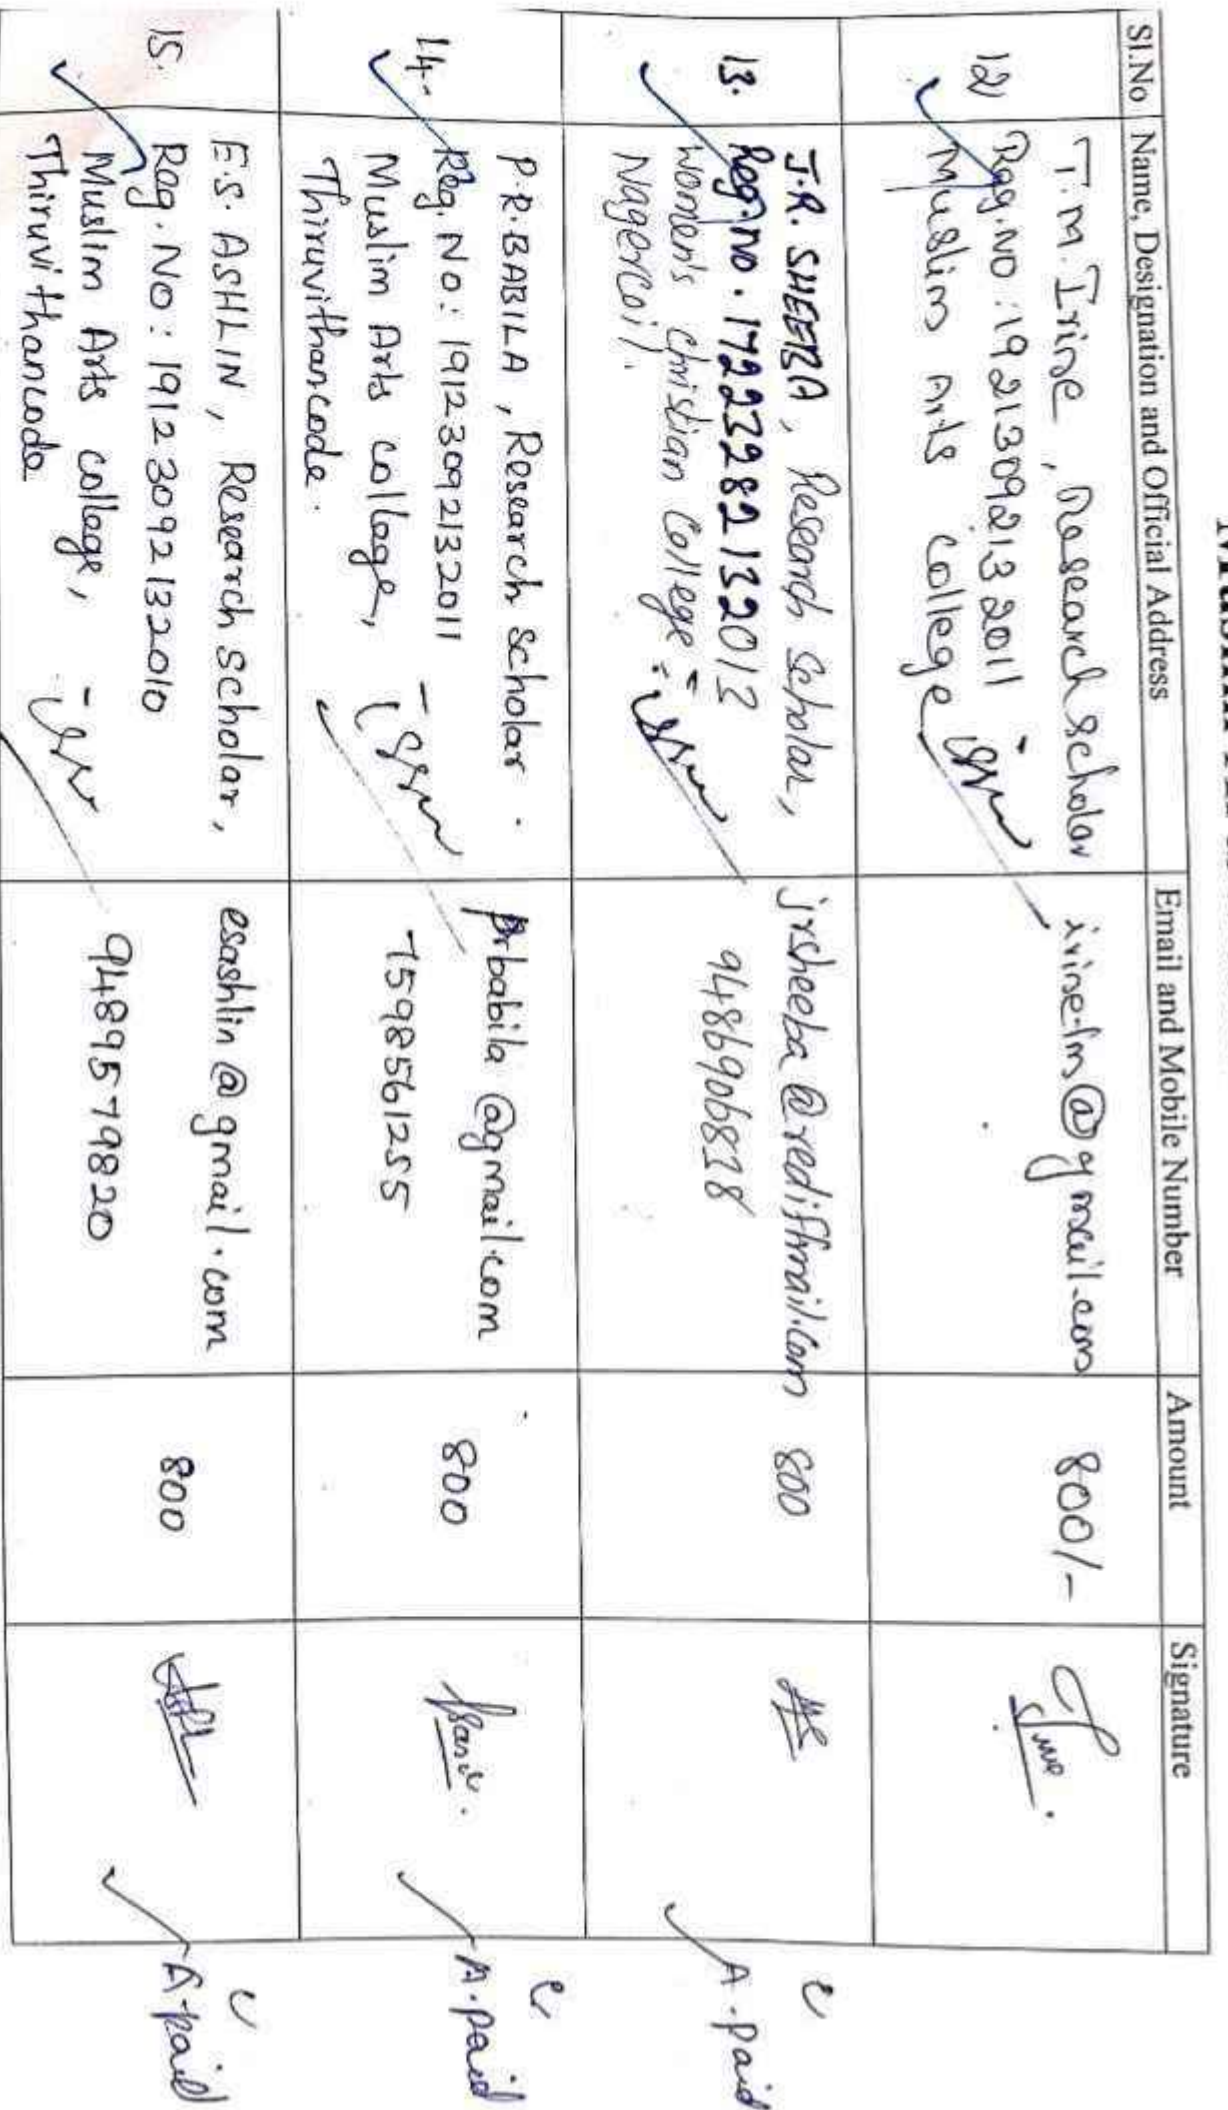 Sl.No Name, Designation and Official Address Email and Mobile Number Amount Signature
12) T.M. Irine, Research scholar
Reg.No: 19213092132011
Muslim Arts College
irine.tm@gmail.com
800/-
13. J.R. SHEEBA, Research Scholar,
Reg.no. 17223282132013
Women's Christian College
Nagercoil.
jrsheeba@rediffmail.com
9486906838
800
A.paid
14. P.R.BABILA, Research Scholar.
Reg. No: 19123092132011
Muslim Arts collage,
Thiruvithancode.
prbabila@gmail.com
7598561255
800
A.paid
15. E.S. ASHLIN, Research Scholar,
Reg. No: 19123092132010
Muslim Arts collage,
Thiruvithancode
esashlin@gmail.com
9489579820
800
A.paid